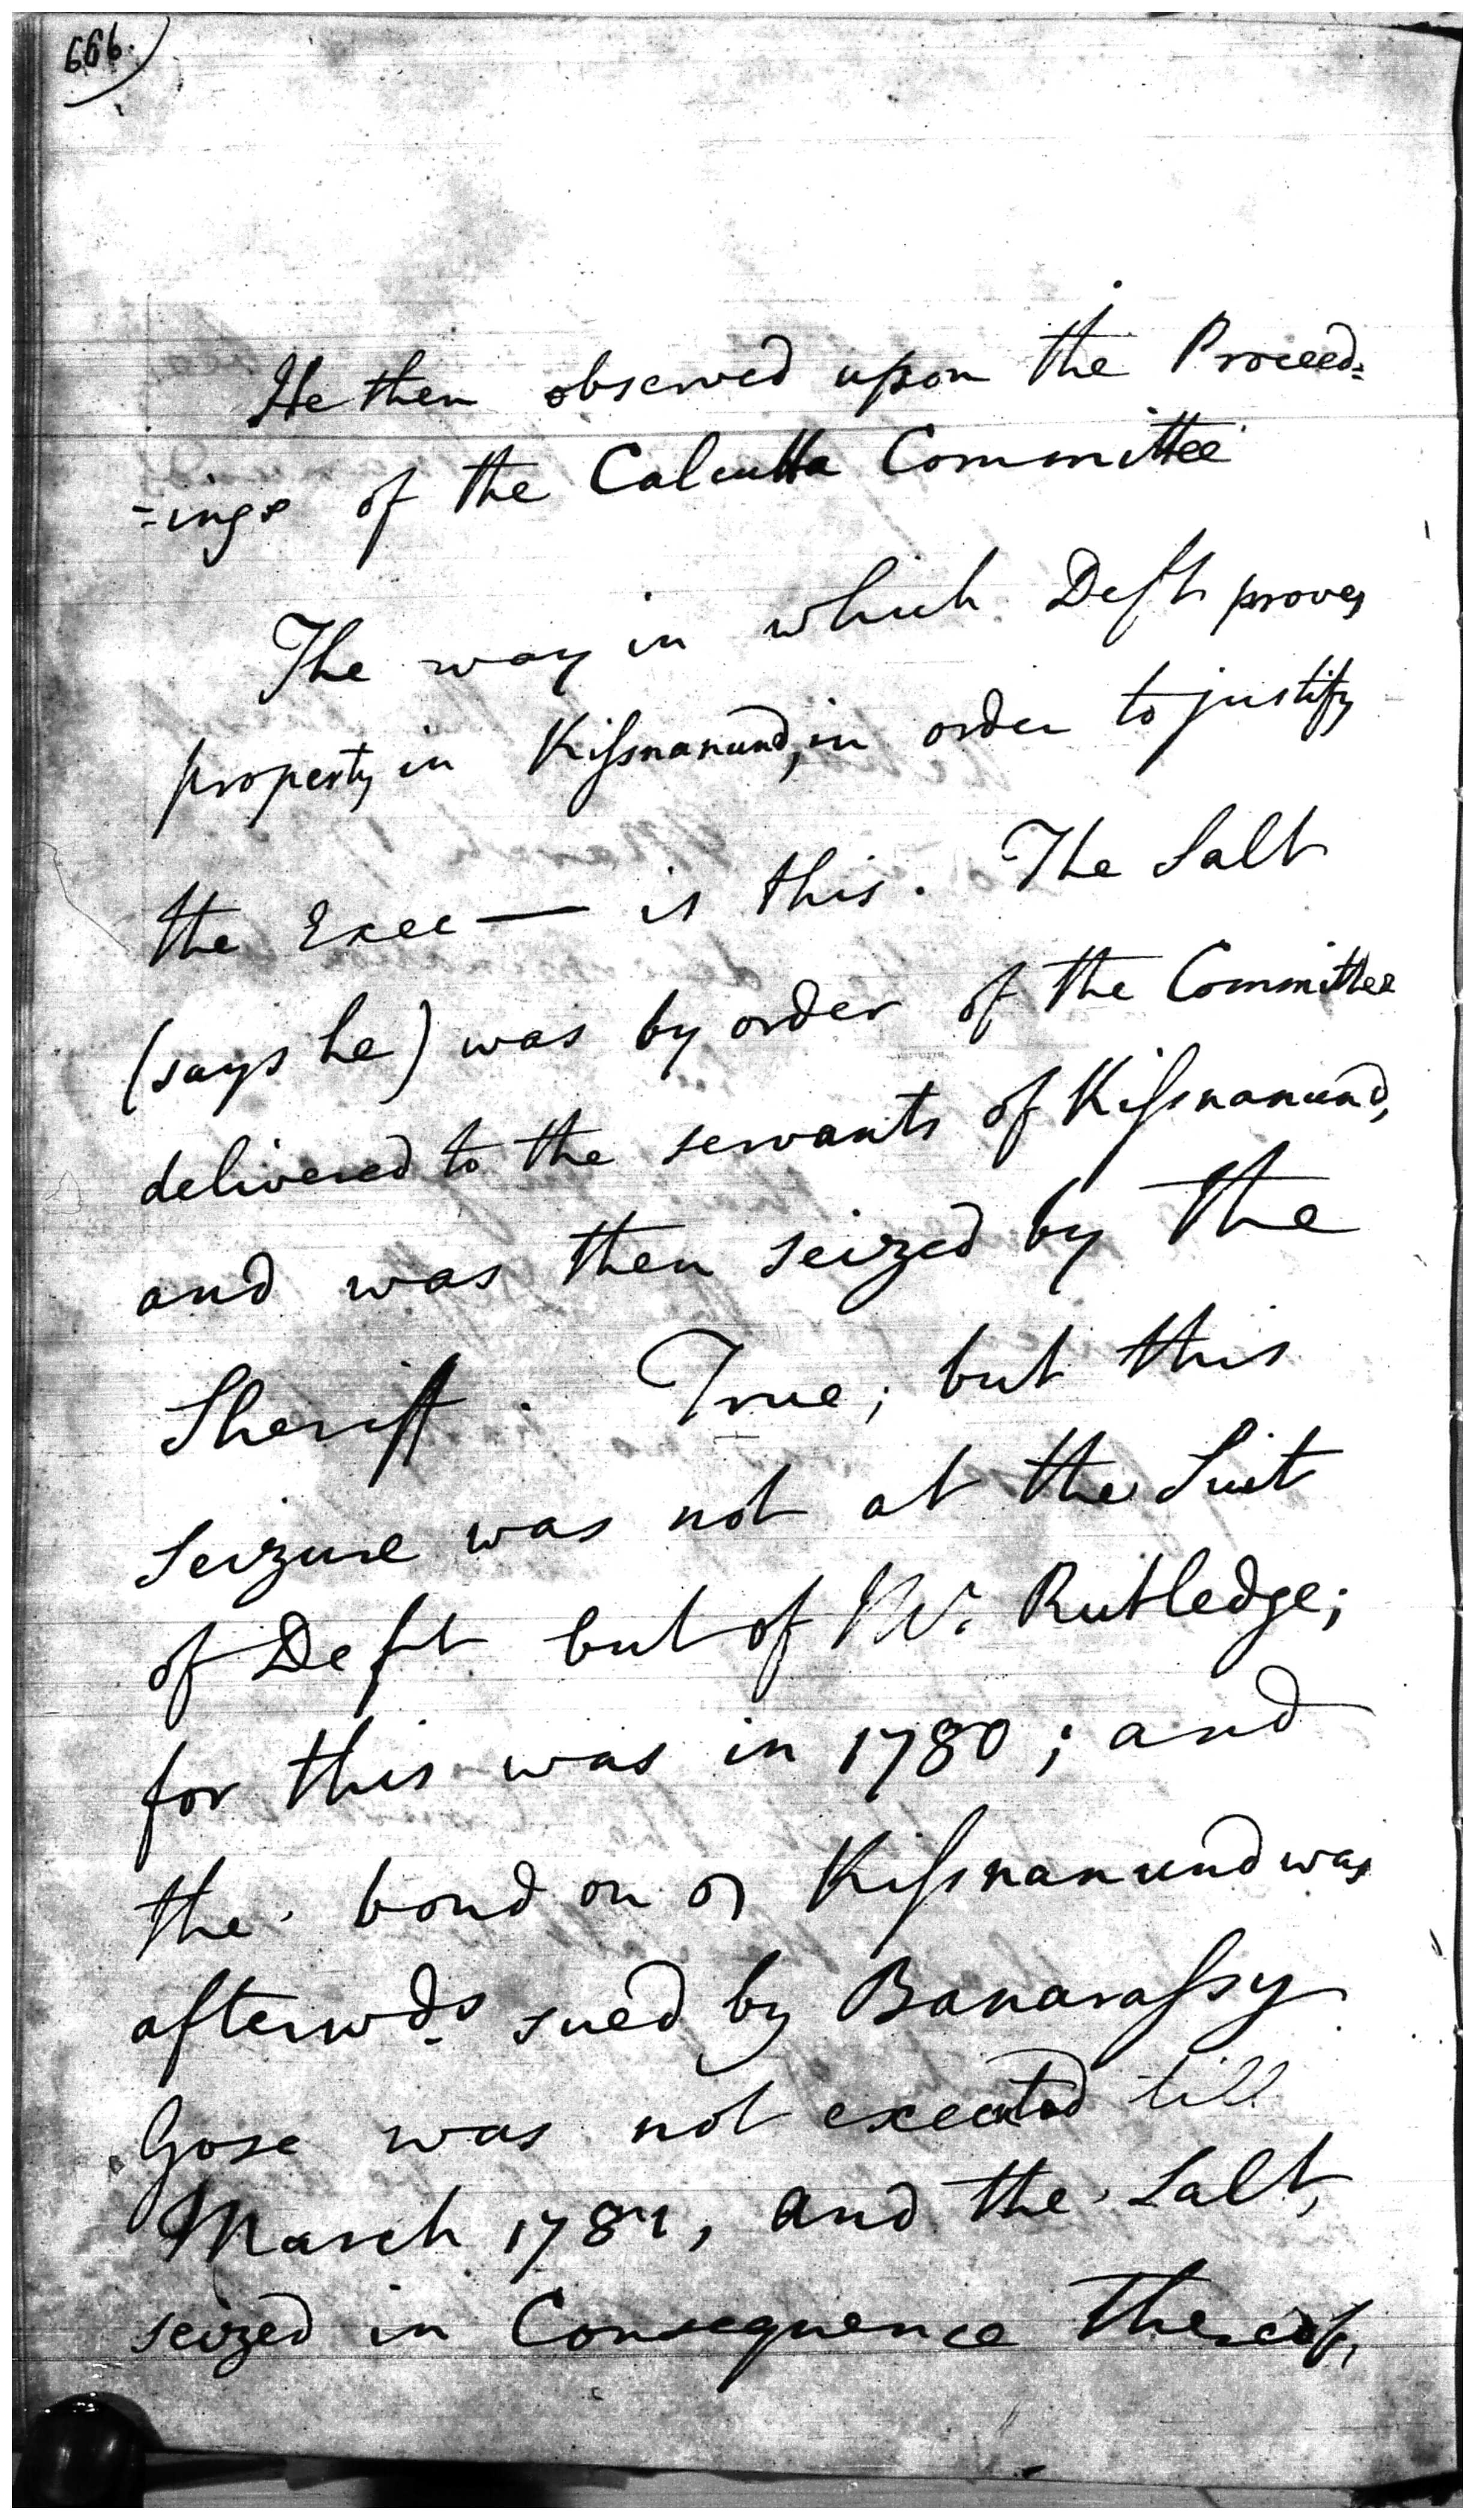 666.
He then observed upon the Proceed=
=ings of the Calcutta Committee
The way in which Deft proves
property in Kissnanund, in order to justify
the Exec— is this. The Salt
(says he) was by order of the Committee
delivered to the servants of Kissnanund,
and was then seized by the
Sheriff. True; but this
seizure was not at the Suit
of Deft but of Mr. Rutledge;
for this was in 1780; and
the bond on Kissnanund was
afterwds sued by Banarassy
Gose was not executed till
March 1781, and the Salt,
seized in Consequence thereof,